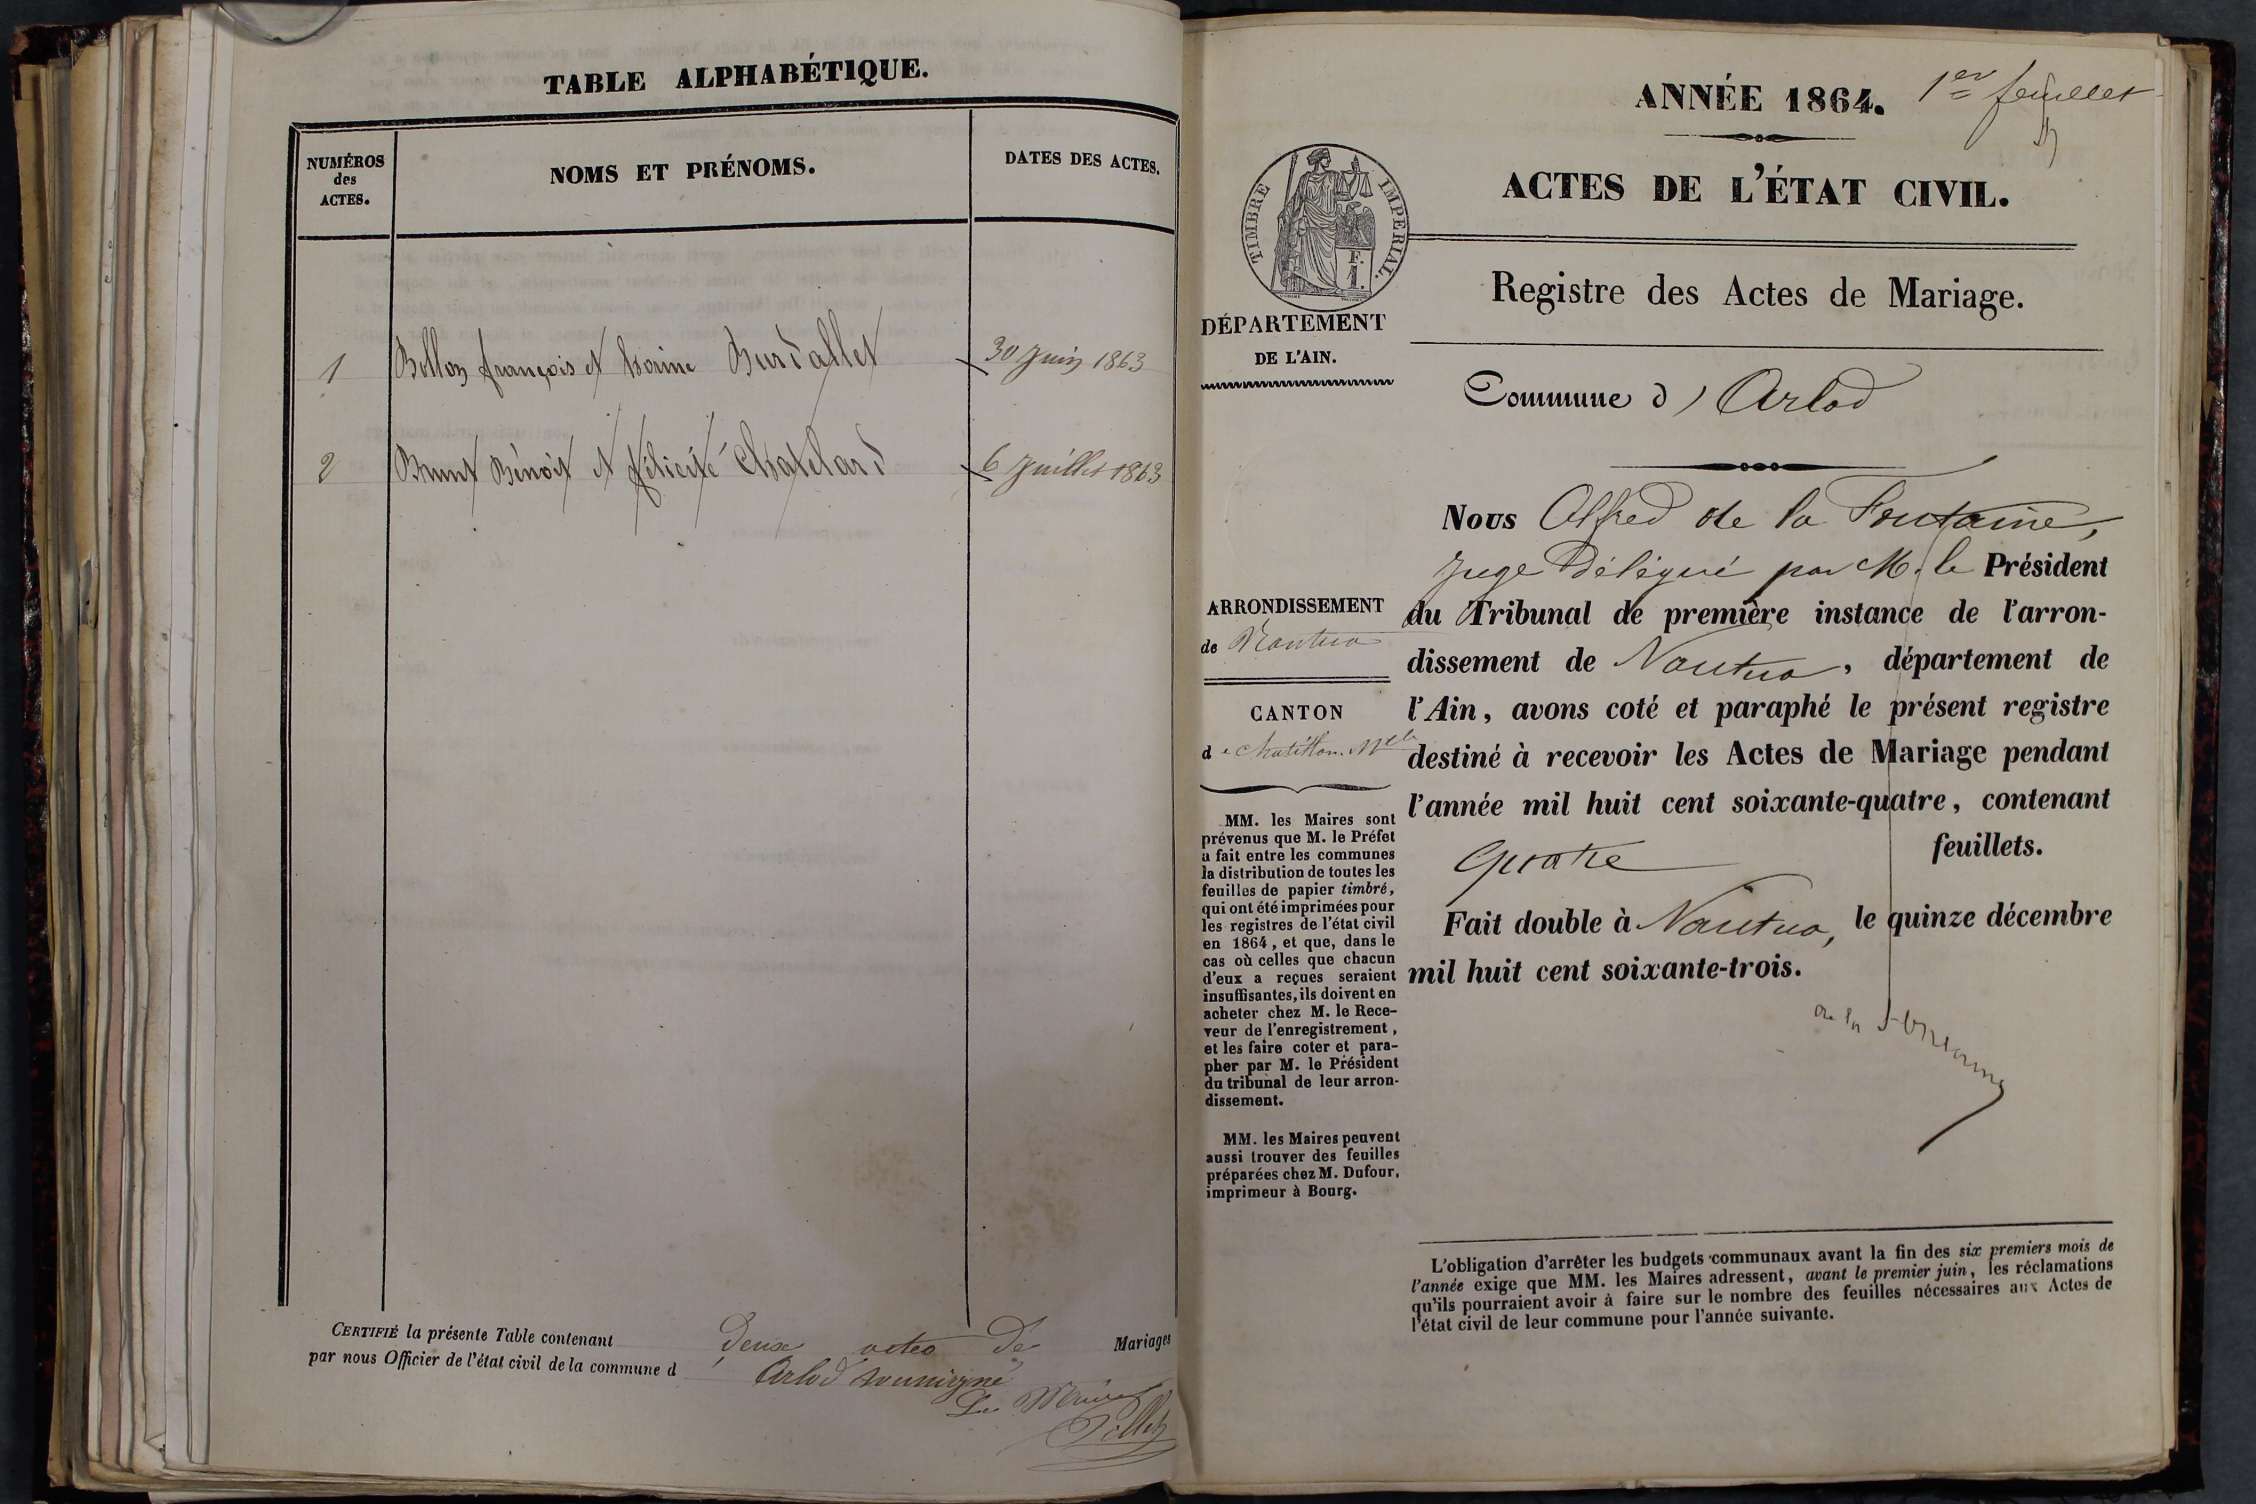 TABLE ALPHABÉTIQUE.
NUMÉROS
des
ACTES.
NOMS ET PRÉNOMS.
DATES DES ACTES.
1 françois et Burdallet 30 Juin 1863
2 Brunet Bénoit et félicité Chatelard 6 Juillet 1863
CERTIFIÉ la présente Table contenant deux actes de Mariages
par nous Officier de l'état civil de la commune d Arlod soussigné
Le Maire
ANNÉE 1864.
1er feuillet
ACTES DE L'ÉTAT CIVIL.
TIMBRE IMPERIAL.
F.
1.
Registre des Actes de Mariage.
DÉPARTEMENT
DE L'AIN.
Commune d' Arlod
ARRONDISSEMENT
de Nantua
CANTON
de Chatillon
MM. les Maires sont
prévenus que M. le Préfet
a fait entre les communes
la distribution de toutes les
feuilles de papier timbré,
qui ont été imprimées pour
les registres de l'état civil
en 1864, et que, dans le
cas où celles que chacun
d'eux a reçues seraient
insuffisantes, ils doivent en
acheter chez M. le Rece-
veur de l'enregistrement,
et les faire coter et para-
pher par M. le Président
du tribunal de leur arron-
dissement.
MM. les Maires peuvent
aussi trouver des feuilles
préparées chez M. Dufour,
imprimeur à Bourg.
Nous Alfred de la Fontaine,
Juge Délégué par M. le Président
du Tribunal de première instance de l'arron-
dissement de Nantua, département de
l'Ain, avons coté et paraphé le présent registre
destiné à recevoir les Actes de Mariage pendant
l'année mil huit cent soixante-quatre, contenant
quatre feuillets.
Fait double à Nantua, le quinze décembre
mil huit cent soixante-trois.
de la Fontaine
L'obligation d'arrêter les budgets communaux avant la fin des six premiers mois de
l'année exige que MM. les Maires adressent, avant le premier juin, les réclamations
qu'ils pourraient avoir à faire sur le nombre des feuilles nécessaires aux Actes de
l'état civil de leur commune pour l'année suivante.